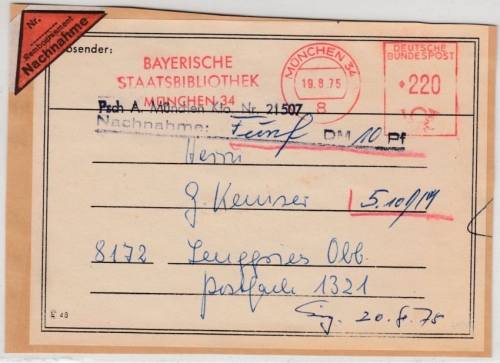 Nr.
Remboursement
Nachnahme
Absender:
BAYERISCHE
STAATSBIBLIOTHEK
MÜNCHEN 34
MÜNCHEN 34
19.8.75
8
DEUTSCHE
BUNDESPOST
220
Psch A. München Kto. Nr. 21507
Nachnahme: Fünf DM 10 Pf
Herrn
G. Kemser
5.10 DM
8172 Lenggries Obb.
Postfach 1321
Eing. 20.8.75
48